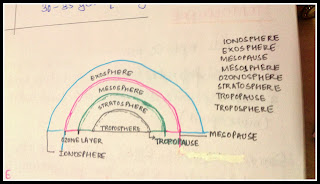 IONOSPHERE
EXOSPHERE
MESOPAUSE
MESOSPHERE
OZONOSPHERE
STRATOSPHERE
TROPOPAUSE
TROPOSPHERE
EXOSPHERE
MESOSPHERE
STRATOSPHERE
TROPOSPHERE
MESOPAUSE
OZONE LAYER
TROPOPAUSE
IONOSPHERE
E